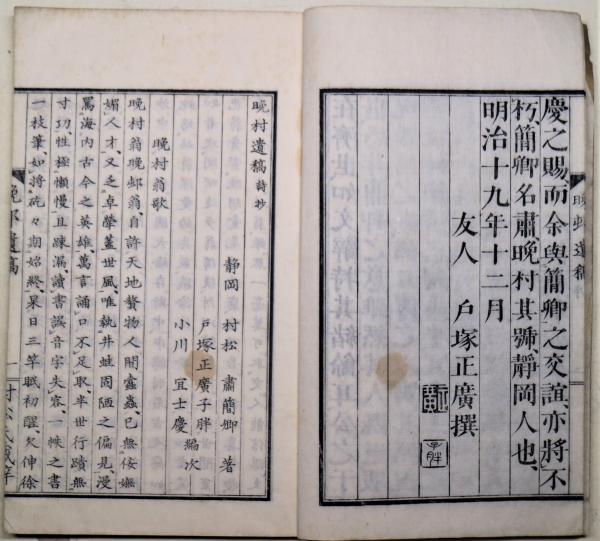 慶之賜而余與簡卿之交誼、亦將不
朽、簡卿名肅晚村其號、靜岡人也、
明治十九年十二月
友人　戶塚正廣撰
晚村遺稿
晚村遺稿 詩抄
靜岡　村松　肅簡卿　著
戶塚正廣子胖
小川　宜士慶　編次
晚村翁歌
晚村翁晚邨翁、自許天地贅物人間蠹蟲、已無佞嫵
媚人才、又乏卓犖蓋世風、唯執井蛙固陋之偏見、漫
罵海內古今之英雄、萬言誦口不足取、半世行蹟無
寸功、性極懶慢且踈漏、讀書誤音字失容、一帙之書
一枝筆、如將矻々期始終、杲日三竿眠初醒、欠伸徐
晚邨遺稿
一